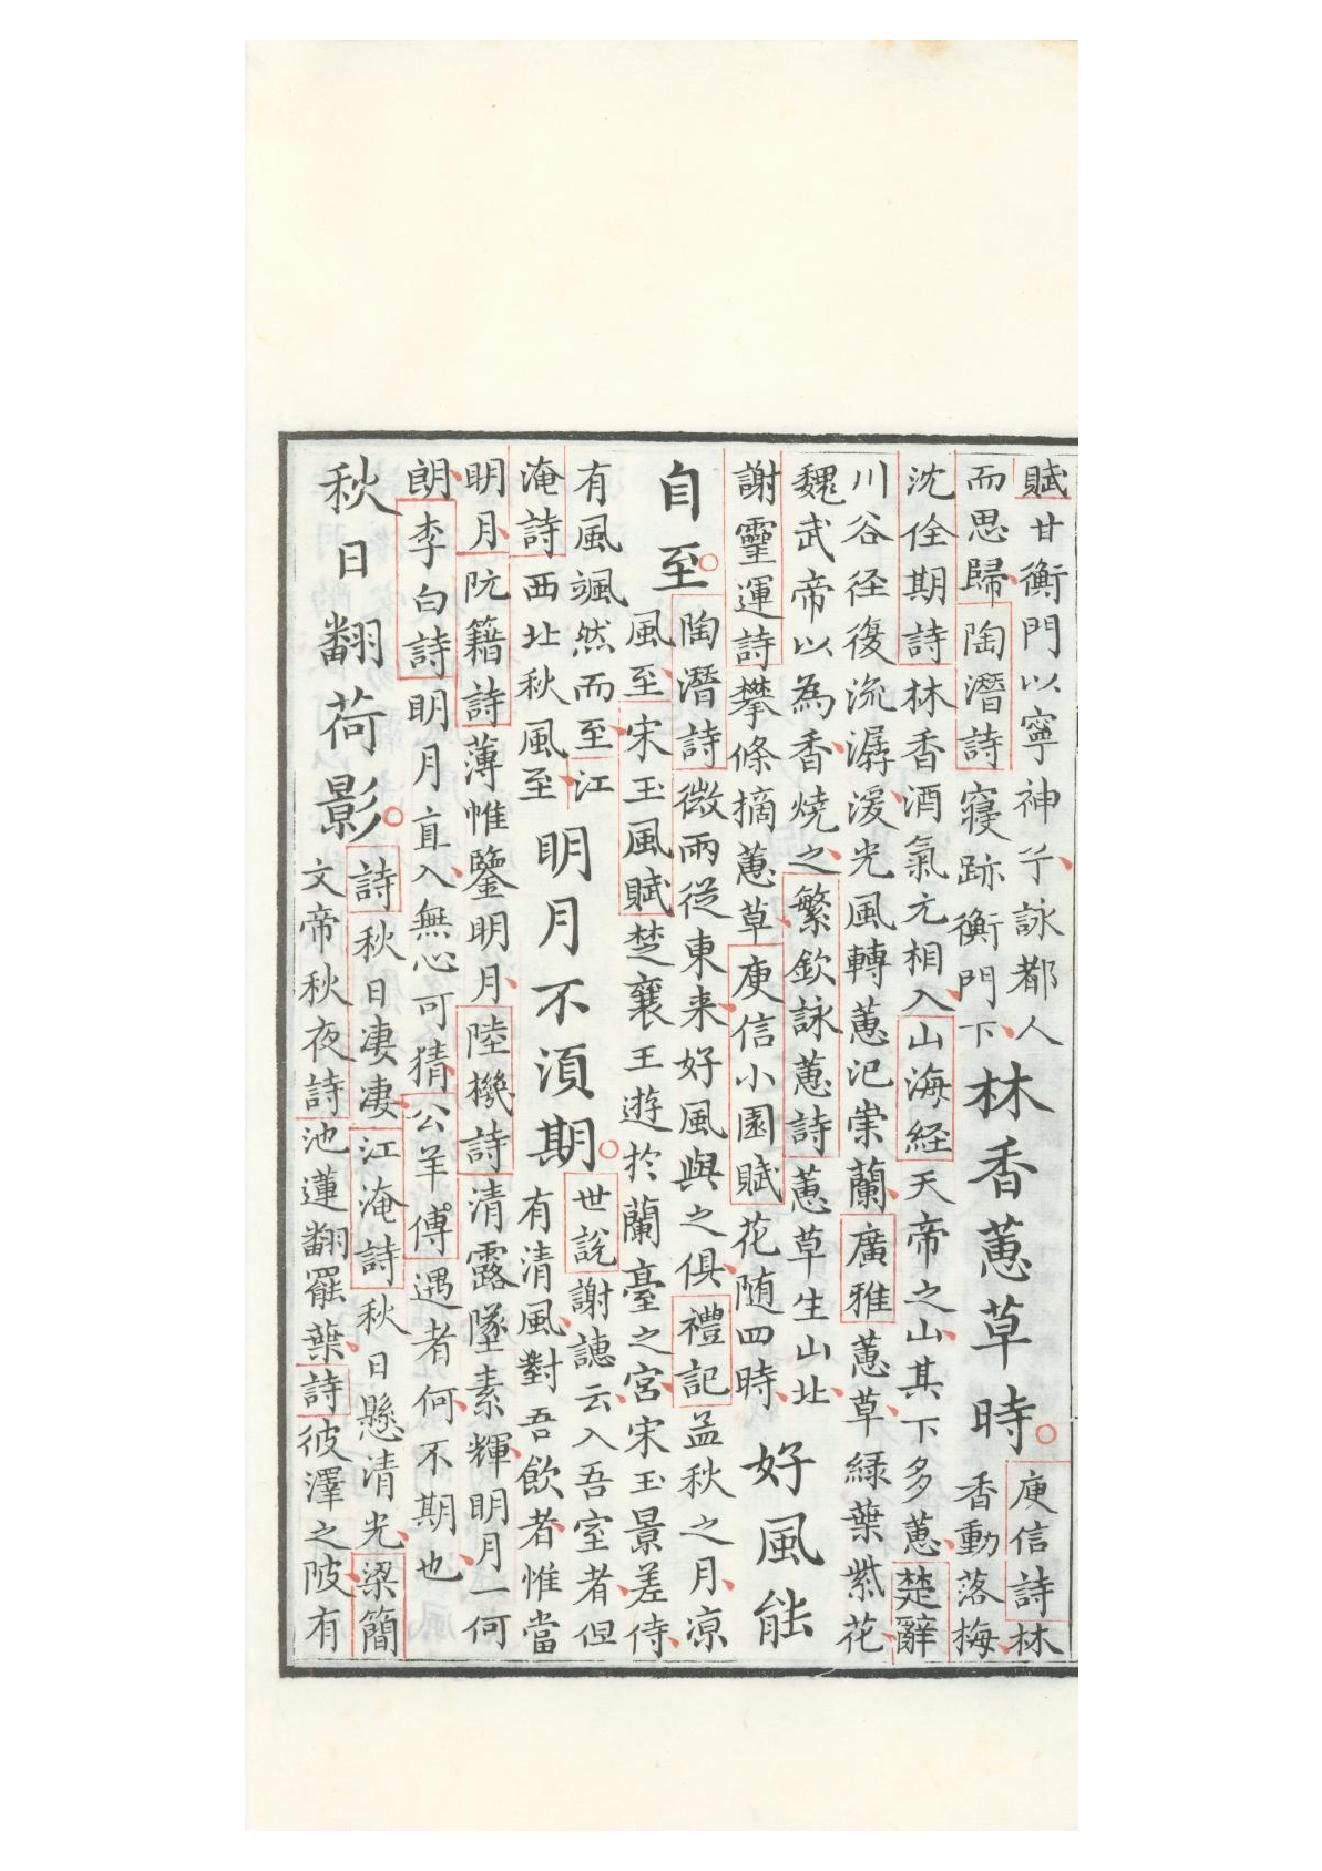 賦甘衡門以寧神兮詠都人
而思歸陶潛詩寢跡衡門下
林香蕙草時
庾信詩林
香動落梅
沈佺期詩林香酒氣元相入山海経天帝之山其下多蕙楚辭
川谷径復流潺湲光風轉蕙汜崇蘭廣雅蕙草緑葉紫花
魏武帝以為香燒之繁欽詠蕙詩蕙草生山北
謝靈運詩攀條摘蕙草庾信小園賦花随四時
好風能
自至
陶潛詩微雨從東来好風與之俱禮記孟秋之月凉
風至宋玉風賦楚襄王遊於蘭臺之宮宋玉景差侍
有風颯然而至江
淹詩西北秋風至
明月不須期
世說謝譓云入吾室者但
有清風對吾飲者惟當
明月阮籍詩薄帷鑒明月陸機詩清露墜素輝明月一何
朗李白詩明月直入無心可猜公羊傳遇者何不期也
秋日翻荷影
詩秋日凄凄江淹詩秋日懸清光梁簡
文帝秋夜詩池蓮翻罷葉詩彼澤之陂有